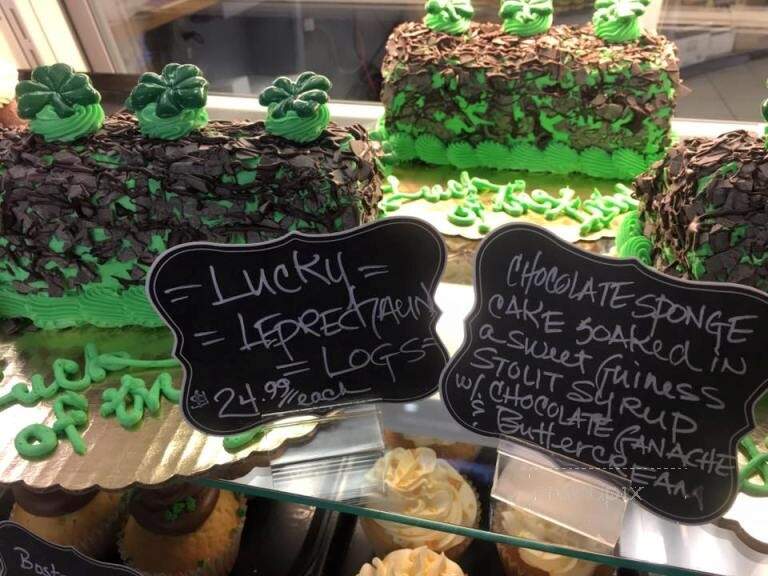 = LUCKY =
= LEPRECHAUN
= LOGS =
$24.99/each
CHOCOLATE SPONGE
CAKE SOAKED IN
a SWEET Guiness
STOLIT SYRUP
w/ CHOCOLATE GANACHE
& BUTTERCREAM
OF
Bost